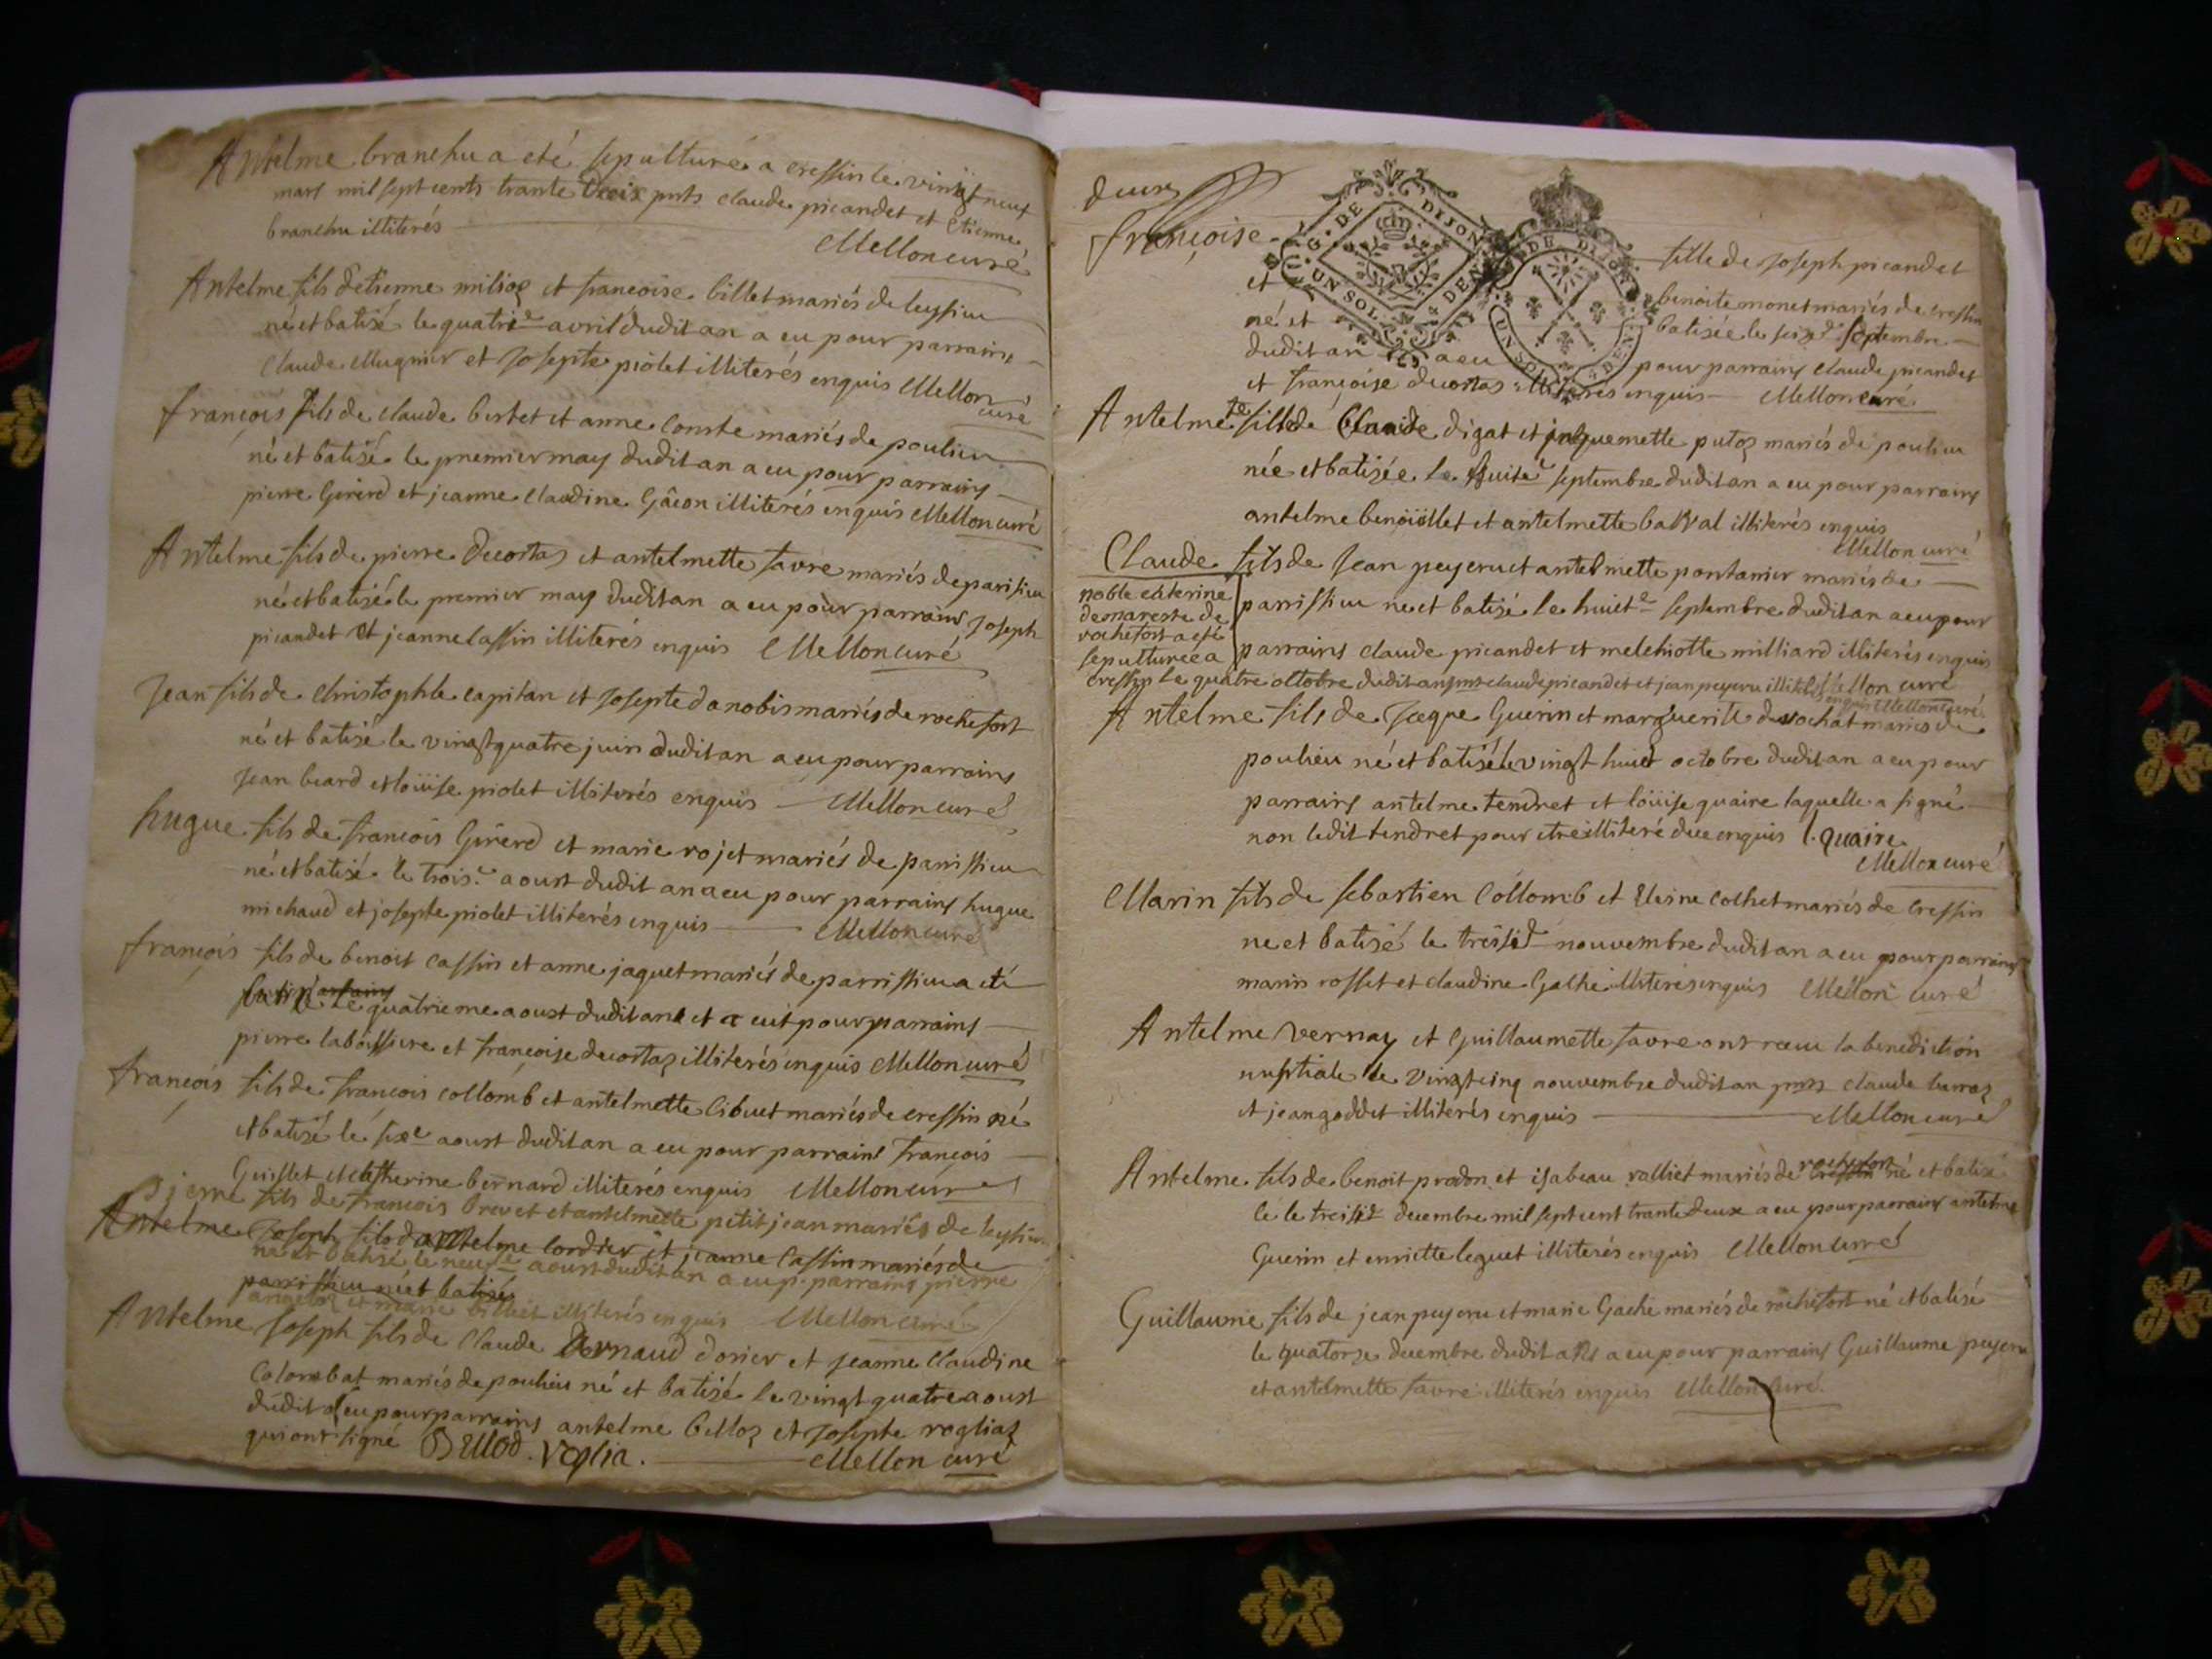 Antelme branchu a eté sepulturé a cressin le vingt neuf
mars mil sept cents trante trois pnts claude picandet et Etienne
branchu illiterés
Mellon curé
Antelme fils detienne milioz et francoise billet mariés de leyssieu
né et batisé le quatrie avril dudit an a eu pour parrains
Claude Mugnier et Josepte piolet illiterés enquis Mellon
curé
françois fils de claude bertet et anne comte mariés de poulieu
né et batisé le premier may dudit an a eu pour parrains
pierre Girerd et jeanne claudine Gâcon illiterés enquis Mellon curé
Antelme fils de pierre Decostaz et antelmette favre mariés de parisieu
né et batisé le premier may dudit an a eu pour parrains Joseph
picandet et jeanne Cassin illiterés enquis Mellon curé
Jean fils de christophle capitan et Josepte danobis mariés de rochefort
né et batisé le vingt quatre juin dudit an a eu pour parrains
Jean beard et loüise piolet illiterés enquis Mellon curé
hugue fils de françois Girerd et marie rojet mariés de parrissieu
né et batisé le trois.e aoust dudit an a eu pour parrains hugue
michaud et josepte piolet illiterés enquis Mellon curé
françois fils de benoit cassin et anne jaquet mariés de parrissieu a eté
batisé le quatrieme aoust dudit an et a eut pour parrains
pierre laboissiere et françoise decostaz illiterés enquis Mellon curé
françois fils de francois collomb et antelmette Cibuet mariés de cressin né
et batisé le sixe aoust dudit an a eu pour parrains françois
Guillet et catherine bernard illiterés enquis Mellon curé
pierre fils de françois brevet et antelmette petit jean mariés de leyssieu
Antelme Joseph fils dantelme cordier et jeanne Cassin mariés de
né et batisé le neufe aoust dudit an a eu p. parrains pierre
parrissieu né et batisé
et marie billiet illiterés enquis Mellon curé
Antelme Joseph fils de Claude Bernaud dorier et Jeanne Claudine
Colombat mariés de poulieu né et batisé le vingt quatre aoust
dudit a eu pour parrains antelme belloz et Josepte vogliaz
qui ont signé Bellod . Voglia . Mellon curé
deux
françoise fille de Joseph picandet
G. DE DIJON
UN SOL
DEN
DE DIJON
UN SOL
DEN
et benoite monet mariés de cressin
né et batisée le sixe septembre
dudit an a eu pour parrains Claude picandet
et françoise decostas illiterés enquis Mellon curé
Antelmete fille de Claude digat et jaquemette putoz mariés de poulieu
née et batisée le huite septembre dudit an a eu pour parrains
antelme benoiöllet et antelmette balval illiterés enquis
Mellon curé
Claude fils de Jean peyeru et antelmette pontanier mariés de
parrissieu ne et batisé le huicte septembre dudit an a eu pour
parrains claude picandet et melchiotte milliard illiterés enquis
Mellon curé
noble caterine
demareste de
rochefort a eté
sepulturée a
cressin le quatre octobre dudit an pnts claude picandet et jean peyeru illit.
enquis Mellon curé
Antelme fils de Jacque Guerin et marguerite durochat mariés de
poulieu né et batisé le vingt huict octobre dudit an a eu pour
parrains antelme tendret et loüise quaire laquelle a signé
non ledit tendret pour etre illiteré de ce enquis l. quaire
Mellon curé
Marin fils de sebastien Collomb et cathet mariés de cressin
ne et batisé le treisie nouvembre dudit an a eu pour parrains
marin rosset et claudine Gache illiterés enquis Mellon curé
Antelme Vernay et Guillaumette favre ont receu la benediction
nuptiale le vingt cinq nouvembre dudit an pnts claude barraz
et jean goddet illiterés enquis Mellon curé
Antelme fils de benoit prodon et isabeau rolliet mariés de cressin rochefort né et batisé
le le treisie decembre mil sept cent trante deux a eu pour parrains antelme
Guerin et enriette leguet illiterés enquis Mellon curé
Guillaume fils de jean peyeru et marie Gache mariés de rochefort né et batisé
le quatorze decembre dudit an a eu pour parrains Guillaume peyeru
et antelmette favre illiterés enquis Mellon curé.